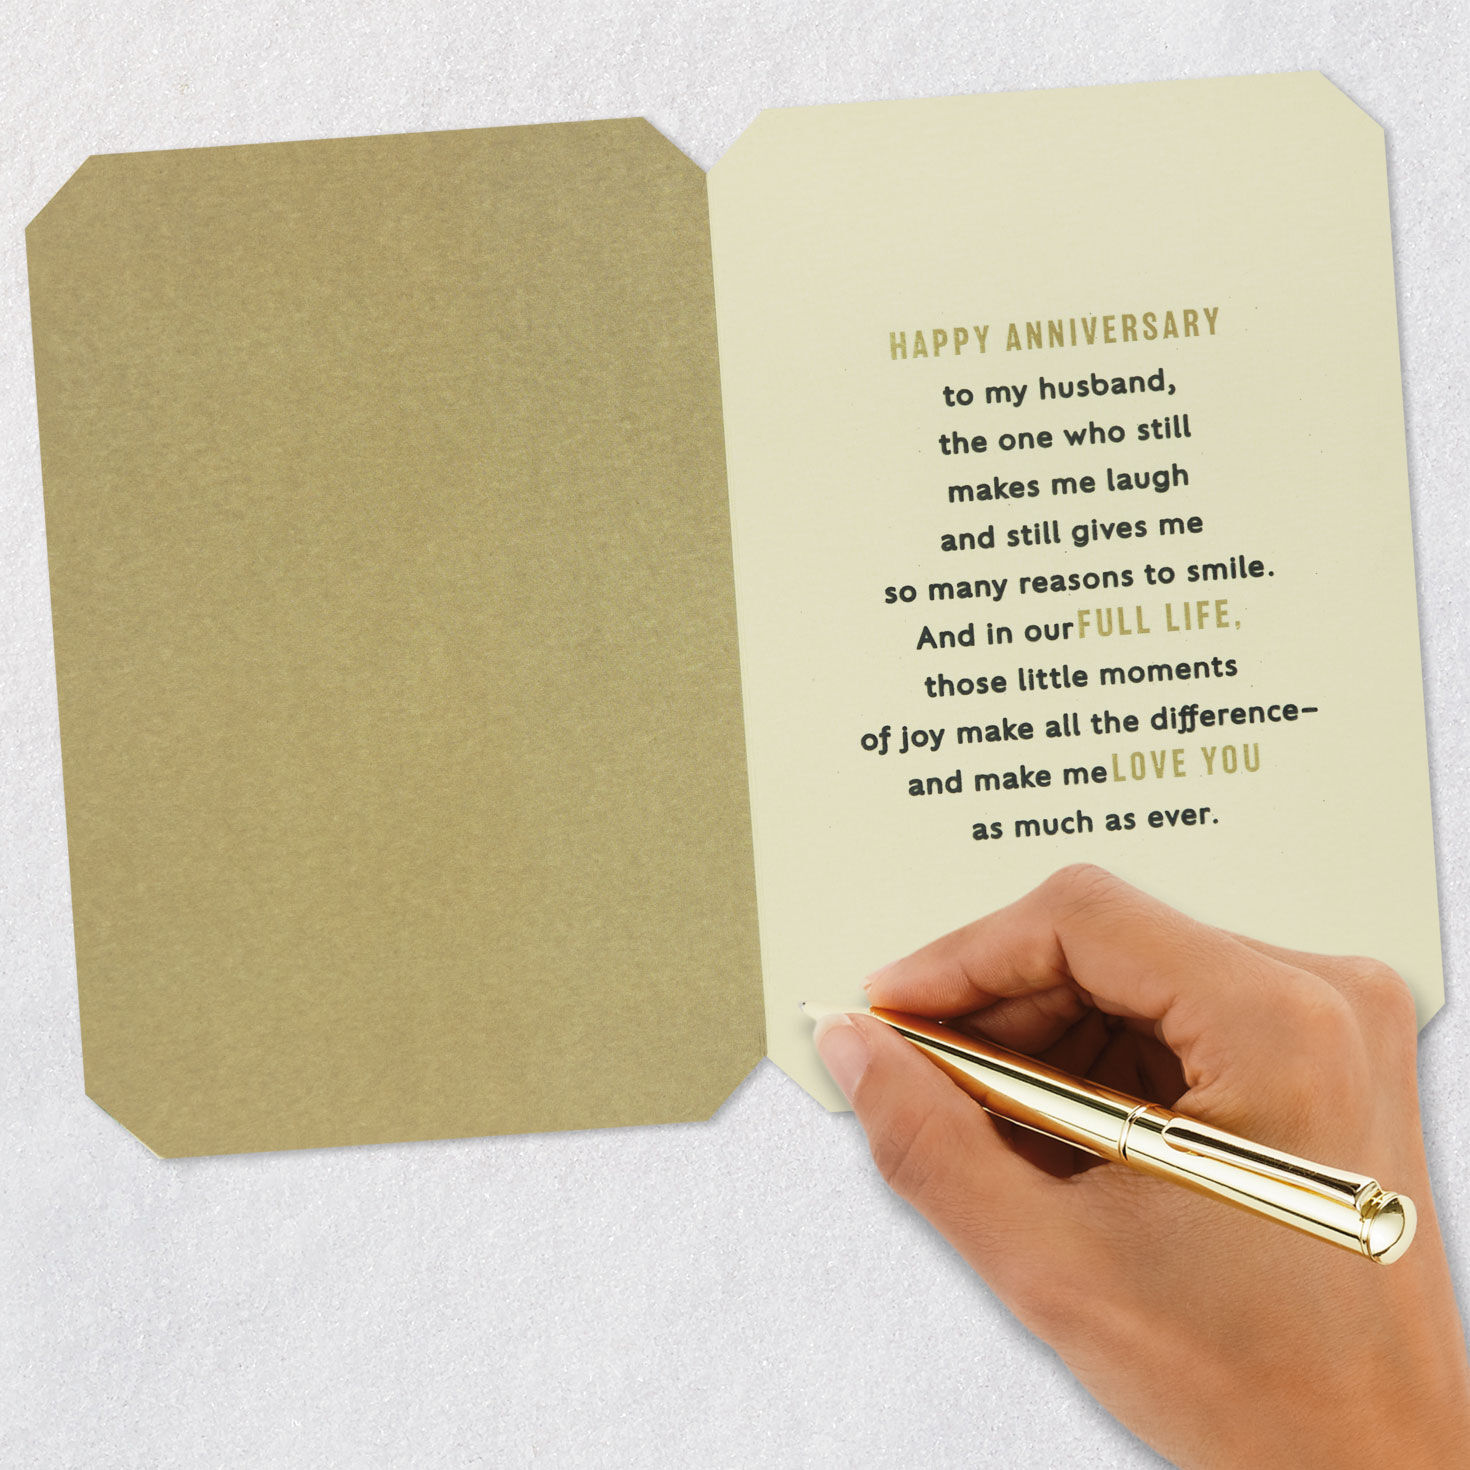 HAPPY ANNIVERSARY
to my husband,
the one who still
makes me laugh
and still gives me
so many reasons to smile.
And in our FULL LIFE,
those little moments
of joy make all the difference–
and make me LOVE YOU
as much as ever.